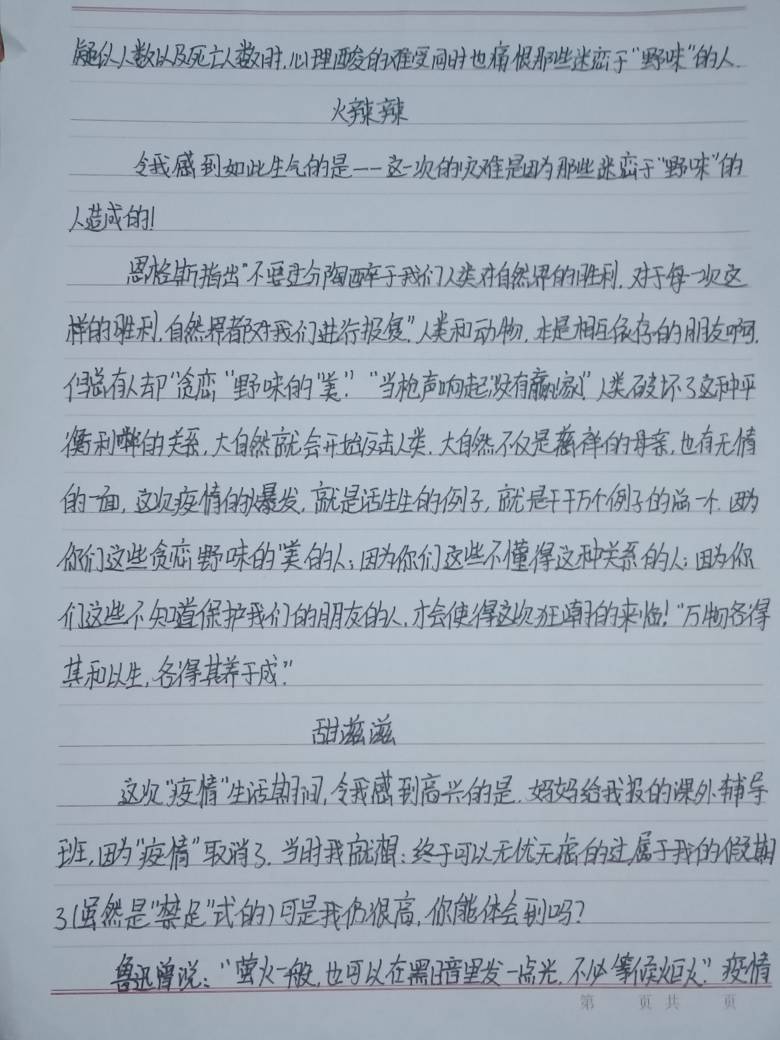 疑似人数以及死亡人数时,心理酸的难受同时也痛恨那些迷恋于"野味"的人.
火辣辣
令我感到如此生气的是——这一次的灾难是因为那些迷恋于"野味"的
人造成的!
恩格斯指出"不要过分陶醉于我们人类对自然界的胜利.对于每一次这
样的胜利,自然界都对我们进行报复."人类和动物,本是相互依存的朋友啊.
但总有人却"贪恋"野味的"美"."当枪声响起没有赢家!"人类破坏了这种平
衡和的关系,大自然就会开始反击人类.大自然不仅是慈祥的母亲,也有无情
的一面,这次疫情的爆发,就是活生生的例子,就是千千万个例子的一个.因为
你们这些贪恋野味的"美"的人;因为你们这些不懂得这种关系的人;因为你
们这些不知道保护我们的朋友的人,才会使得这次狂潮的来临!"万物各得
其和以生,各得其养于成."
甜滋滋
这次"疫情"生活期间,令我感到高兴的是.妈妈给我报的课外辅导
班,因为"疫情"取消了.当时我就想:终于可以无忧无虑的过属于我的假期
了(虽然是"禁足"式的)可是我仍很高,你能体会到吗?
鲁迅曾说:"萤火一般,也可以在黑暗里发一点光.不必等候炬火."疫情
第 页 共 页